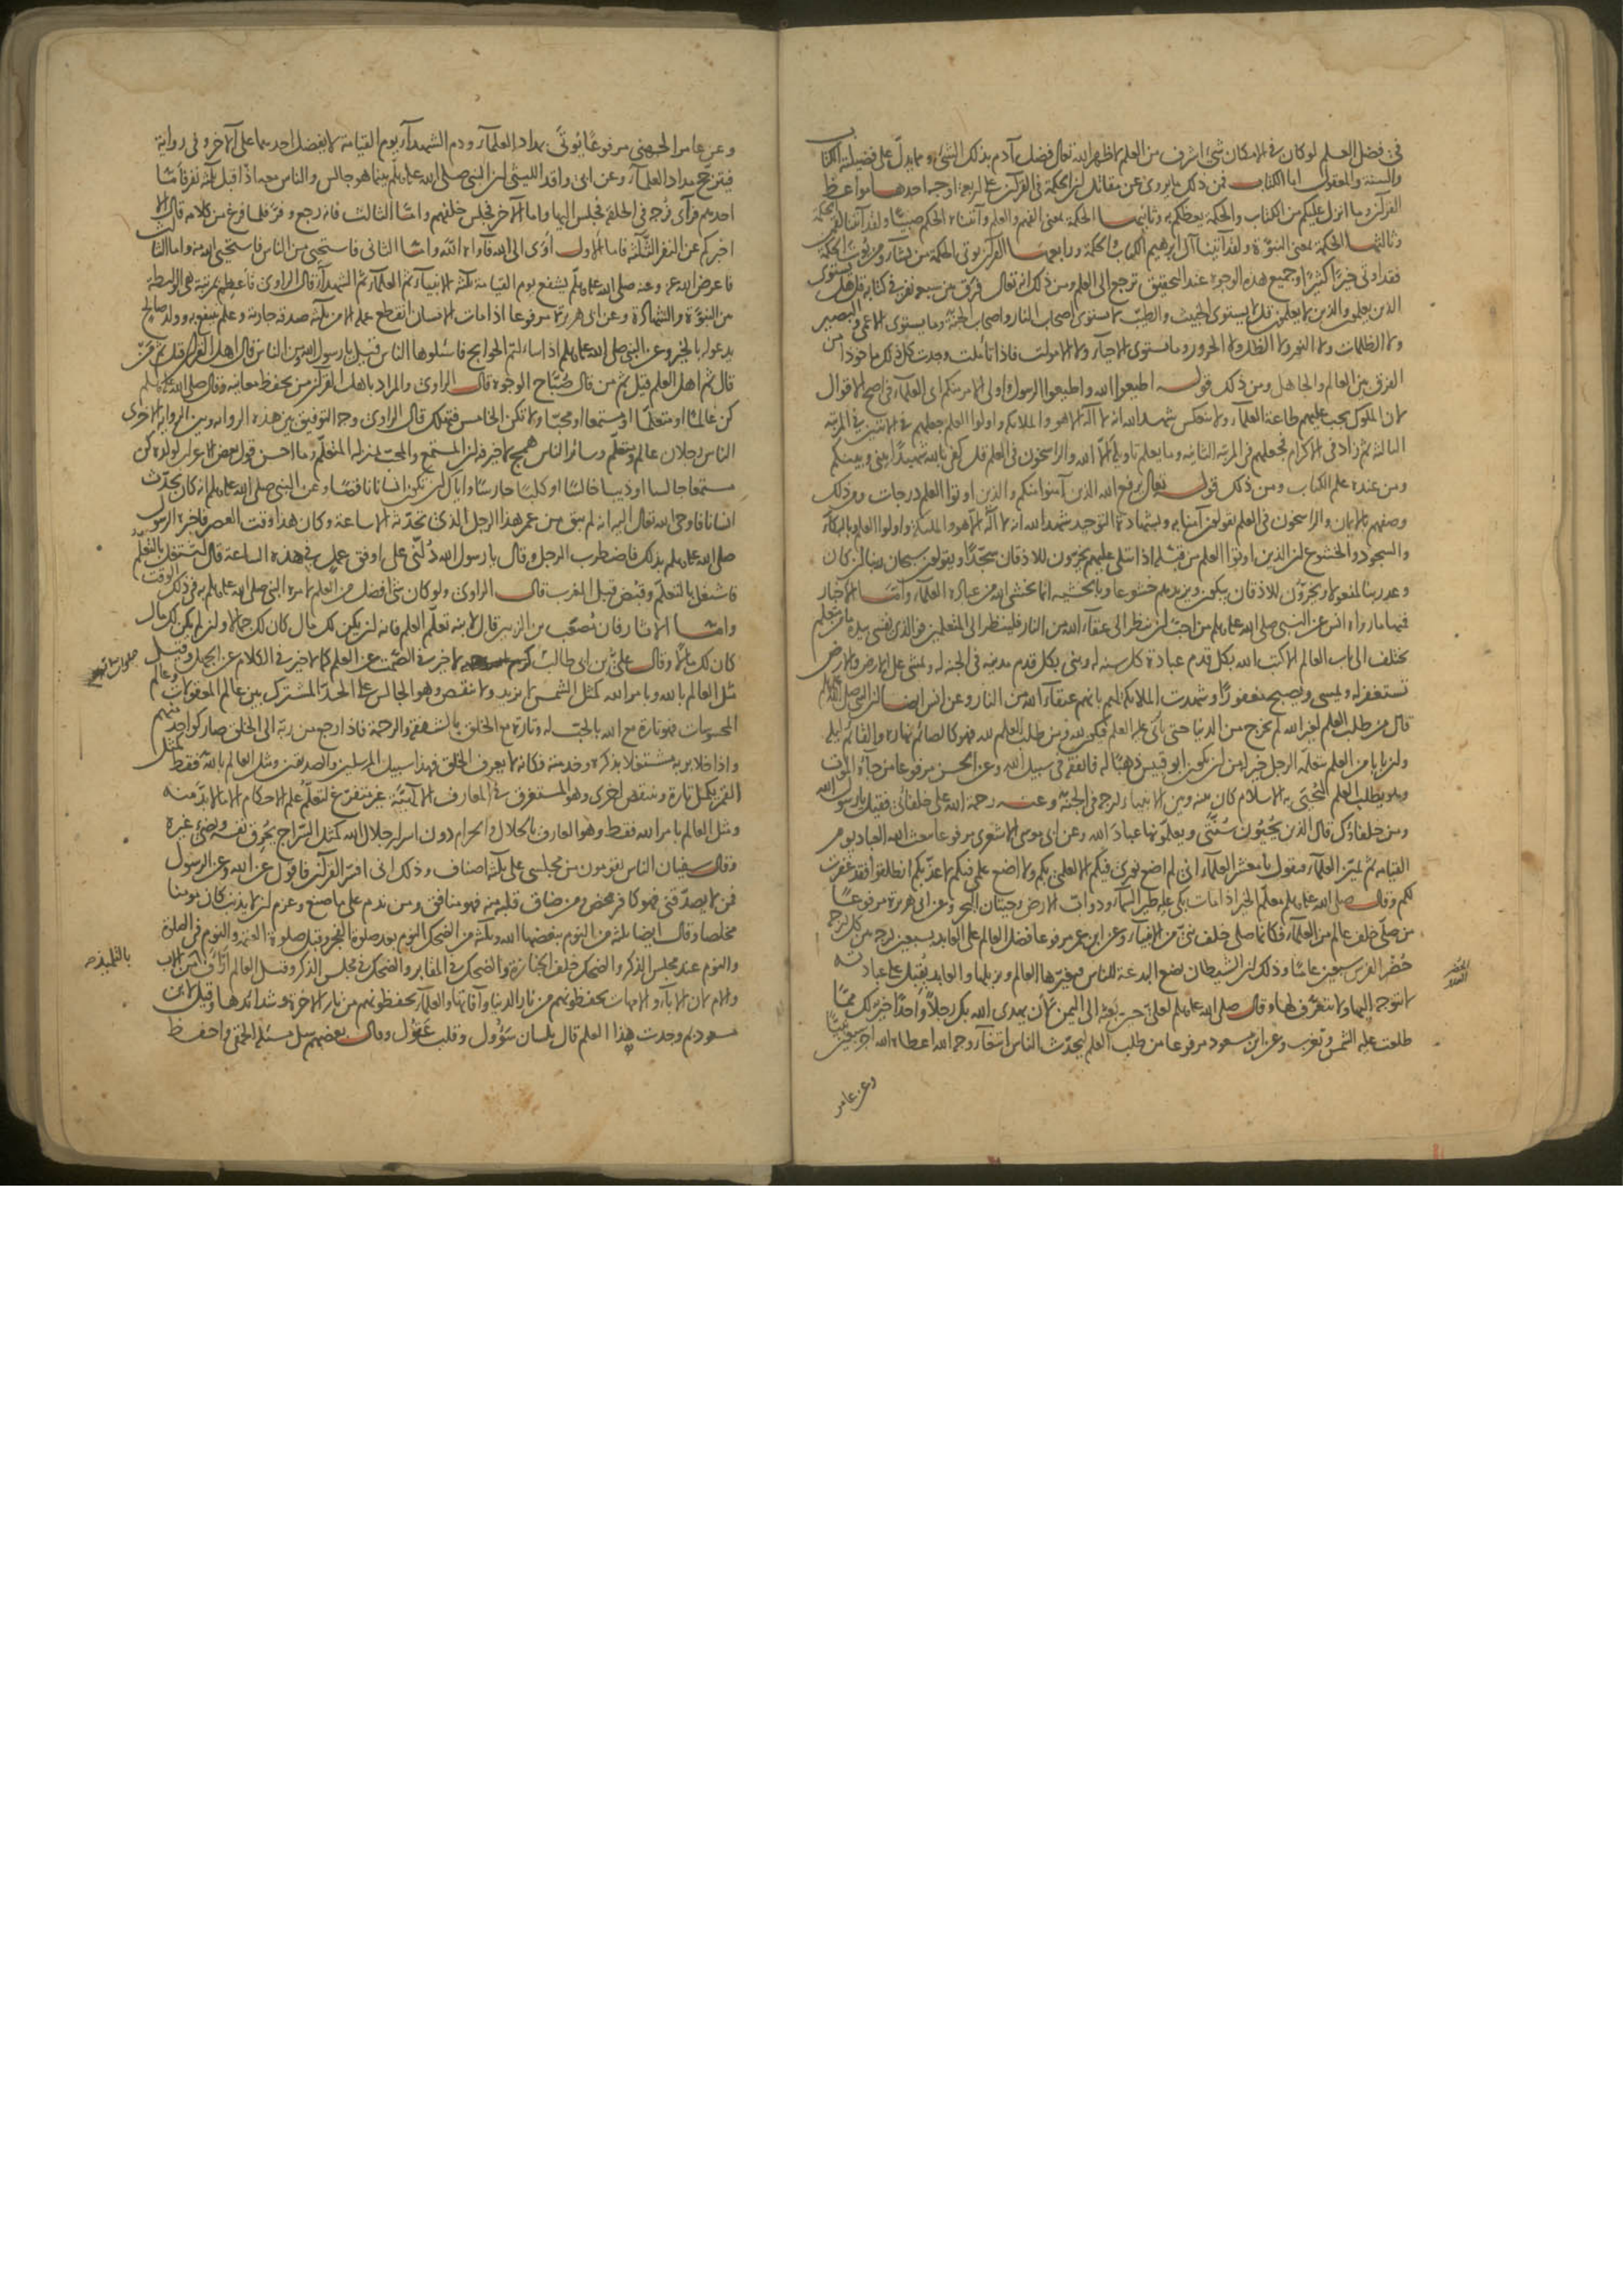 في فضل العلم لو كان في الامكان شئ اشرف من العلم لاظهر الله تعالى فضل آدم بذلك الشئ ومما يدل على فضيلته الكتاب
والسنة والمعقول اما الكتاب فمن ذلك ما يروى عن مقاتل ان الحكمة في القرآن على اربعة اوجه احدها مواعظ
القرآن وما انزل عليكم من الكتاب والحكمة يعظكم به وثانيها الحكمة بمعنى الفهم والعلم وآتيناه الحكم صبيا ولقد آتينا لقمن الحكمة
وثالثها الحكمة بمعنى النبوة ولقد آتينا آل ابرهيم الكتاب والحكمة ورابعها القرآن يوتى الحكمة من يشاء ومن يؤت الحكمة
فقد اوتي خيرا كثيرا وجميع هذه الوجوه عند التحقيق ترجع الى العلم ومن ذلك انه تعالى فرق بين سبع نفر في كتابه قل هل يستوى
الذين يعلمون والذين لا يعلمون قل لا يستوى الخبيث والطيب لا يستوى اصحاب النار واصحاب الجنة وما يستوى الاعمى والبصير
ولا الظلمات ولا النور ولا الظل ولا الحرور وما يستوى الاحياء ولا الاموات فاذا تأملت وجدت كل ذلك ماخوذا من
الفرق بين العالم والجاهل ومن ذلك قوله اطيعوا الله واطيعوا الرسول واولى الامر منكم اى العلماء في اصح الاقوال
لان الملوك يجب عليهم طاعة العلماء ولا ينعكس شهد الله انه لا اله الا هو والملائكة واولوا العلم جعلهم في الآيتين في المرتبة
الثالثة ثم زاد في الاكرام فجعلهم في المرتبة الثانية وما يعلم تاويله الا الله والراسخون في العلم قل كفى بالله شهيدا بيني وبينكم
ومن عنده علم الكتاب ومن ذلك قوله تعالى يرفع الله الذين آمنوا منكم والذين اوتوا العلم درجات ومن ذلك
وصفهم بالايمان والراسخون في العلم يقولون آمنا به وبشهادة التوحيد شهد الله انه لا اله الا هو والملائكة واولوا العلم وبالبكاء
والسجود والخشوع ان الذين اوتوا العلم من قبله اذا يتلى عليهم يخرون للاذقان سجدا ويقولون سبحان ربنا ان كان
وعد ربنا لمفعولا ويخرون للاذقان يبكون ويزيدهم خشوعا وبالخشية انما يخشى الله من عباده العلماء واما الاخبار
فمنها ما رواه انس عن النبي صلى الله عليه وسلم من احب ان ينظر الى عتقاء الله من النار فلينظر الى المتعلمين فوالذي نفسي بيده ما من متعلم
يختلف الى باب العالم الا كتب الله بكل قدم عبادة كل سنة له وبنى بكل قدم مدينة في الجنة له ويمشى على الارض والارض
تستغفر له ويمسى ويصبح مغفورا وشهدت الملائكة لهم بانهم عتقاء الله من النار وعن انس ايضا ان النبي صلى الله عليه وسلم
قال من طلب العلم لغير الله لم يخرج من الدنيا حتى يأتى عليه العلم فيكون لله ومن طلب العلم لله فهو كالصائم نهاره والقائم ليله
وان بابا من العلم يتعلمه الرجل خير له من ان يكون ابو قبيس ذهبا له فانفقه في سبيل الله وعن الحسن مرفوعا من جاءه الموت
وهو يطلب العلم ليحيى به الاسلام كان بينه وبين الانبياء درجة في الجنة وعنه رحمة الله على خلفائى فقيل يا رسول الله
ومن خلفاؤك قال الذين يحيون سنتي ويعلمونها عباد الله وعن ابى موسى الاشعرى مرفوعا يبعث الله العباد يوم
القيامة ثم يميز العلماء فيقول يا معشر العلماء انى لم اضع نورى فيكم الا لعلمى بكم ولا اضع علمى فيكم لاعذبكم انطلقوا فقد غفرت
لكم وقال صلى الله عليه وسلم معلم الخير اذا مات بكى عليه طير السماء ودواب الارض وحيتان البحر وعن ابى هريرة مرفوعا
من صلى خلف عالم من العلماء فكانما صلى خلف نبى من الانبياء وعن ابن عمر مرفوعا فضل العالم على العابد بسبعين درجة بين كل درجة
حضر الفرس سبعين عاما وذلك ان الشيطان يضع البدعة للناس فيبصرها العالم ويزيلها والعابد يقبل على عبادته
لا يتوجه اليها ولا يتعرف لها وقال صلى الله عليه وسلم لعلى حين بعثه الى اليمن لأن يهدى الله بك رجلا واحدا خير لك مما
طلعت عليه الشمس وتغرب وعن ابن مسعود مرفوعا من طلب العلم ليحدث الناس ابتغاء وجه الله اعطاه الله اجر سبعين نبيا
وعن عامر
وعن عامر الجهنى مرفوعا يؤتى بمداد العلماء ودم الشهداء يوم القيامة لا يفضل احدهما على الآخر وفى رواية
فيترجح مداد العلماء وعن ابى واقد الليثى ان النبي صلى الله عليه وسلم بينما هو جالس والناس معه اذ اقبل ثلثة نفر فأما
احدهم فرأى فرجة في الحلقة فجلس اليها واما الآخر فجلس خلفهم واما الثالث فانه رجع وفر فلما فرغ من كلامه قال الا
اخبركم عن النفر الثلثة فاما الأول اوى الى الله فآواه الله واما الثانى فاستحيى من الناس فاستحيى الله منه واما الثالث
فاعرض الله عنه وعنه صلى الله عليه وسلم يشفع يوم القيامة ثلثة الانبياء ثم العلماء ثم الشهداء قال الراوى فأعظم بمرتبة هى الواسطة
بين النبوة والشهادة وعن ابى هريرة مرفوعا اذا مات الانسان انقطع عمله الا من ثلثة صدقة جارية وعلم ينتفع به وولد صالح
يدعو له بالخير وعن النبي صلى الله عليه وسلم اذا سالتم الحوايج فاسئلوها الناس قيل يا رسول الله ومن الناس قال اهل القرآن قيل ثم من
قال ثم اهل العلم قيل ثم من قال صباح الوجوه قال الراوى والمراد باهل القرآن من يحفظ معانيه وقال صلى الله عليه وسلم
كن عالما او متعلما او مستمعا او محبا ولا تكن الخامس فتهلك قال الراوى وجه التوفيق بين هذه الرواية وبين الرواية الاخرى
الناس رجلان عالم ومتعلم وسائر الناس همج لا خير فيه ان المستمع والمحب بمنزلة المتعلم وما احسن قول بعض الاعراب لولده كن
سبعا خالسا او ذيبا خانسا او كلبا حارسا واياك ان تكون انسانا ناقصا وعن النبي صلى الله عليه وسلم انه كان يحدث
انسانا فاوحى الله تعالى اليه انه لم يبق من عمر هذا الرجل الذى تحدثه الا ساعة وكان هذا وقت العصر فاخبره الرسول
صلى الله عليه وسلم بذلك فاضطرب الرجل وقال يا رسول الله دلنى على اوفق عمل لى في هذه الساعة قال اشتغل بالتعلم
فاشتغل بالتعلم وقبض قبيل المغرب قال الراوى ولو كان شئ افضل من العلم لامره النبي صلى الله عليه وسلم به في ذلك الوقت
واما الاثار فان مصعب بن الزبير قال لابنه تعلم العلم فانه ان يكن لك مال كان لك جمالا وان لم يكن لك مال
كان لك مالا وقال على بن ابى طالب لا خير في الصمت عن العلم كما لا خير في الكلام عن الجهل وقيل
مثل العالم بالله وبامر الله كمثل الشمس لا يزيد ولا ينقص وهو الجالس على الحد المشترك بين عالم المعقولات وعالم
المحسوسات فهو تارة مع الله بالحب له وتارة مع الخلق بالشفقة والرحمة فاذا رجع من ربه الى الخلق صار كواحد منهم
واذا خلا بربه مشتغلا بذكره وخدمته فكانه لا يعرف الخلق فهذا سبيل المرسلين والصديقين ومثل العالم بالله فقط كمثل
القمر يكمل تارة وينقص اخرى وهو المستغرق في المعارف الالهية غير متفرغ لتعلم علم الاحكام الا ما لا بد منه
ومثل العالم بامر الله فقط وهو العارف بالحلال والحرام دون اسرار جلال الله كمثل السراج يحرق نفسه ويضئ غيره
وقال سفيان الناس يقومون من مجلسى على ثلثة اصناف وذلك انى افسر القرآن فاقول عن الله وعن الرسول
فمن لا يصدقنى فهو كافر محض ومن ضاق قلبه منه فهو منافق ومن ندم على ما صنع وعزم ان لا يذنب كان مومنا
مخلصا وقال ايضا ثلثة من النوم يبغضها الله وثلثة من الضحك النوم بعد صلوة الفجر وقبل صلوة العتمة والنوم في الصلوة
والنوم عند مجلس الذكر والضحك خلف الجنازة والضحك في المقابر والضحك في مجلس الذكر وقيل العالم أرأف من الاب
والام لان الآباء والامهات يحفظونهم من نار الدنيا وآفاتها والعلماء يحفظونهم من نار الاخرة وشدائدها وقيل لابن
مسعود بم وجدت هذا العلم قال بلسان سؤول وقلب عقول وقال بعضهم سل مسئلة الحمقى واحفظ
بالتلميذ صح